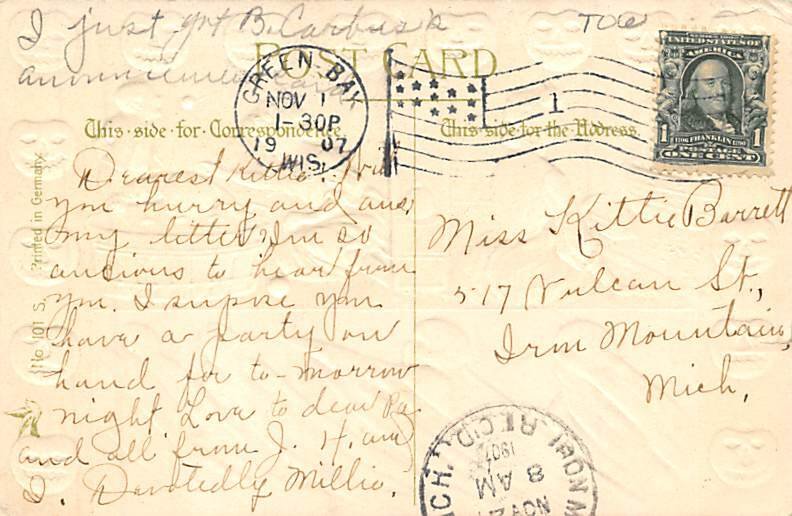 I just got B. Carbus's
announcement card
TOO
POST CARD
This·side·for·Correspondence.
This·side·for·the·Address.
GREEN BAY
NOV 1
1-30P
19 07
WIS.
1
UNITED STATES OF
AMERICA
1706 FRANKLIN 1790
1 1
ONE CENT
No. 101 S. Printed in Germany.
Dearest Kittie. Will
you hurry and ans.
my letter Im so
ancious to hear from
you. I supose you
have a party on
hand for to-morrow
night. Love to dear Pa.
and all from J. H. and
I. Devotedly Millie.
Miss Kittie Barrett
517 Vulcan St.,
Iron Mountain,
Mich.
IRON M
MICH. REC'D.
NOV 2
8 AM
1907